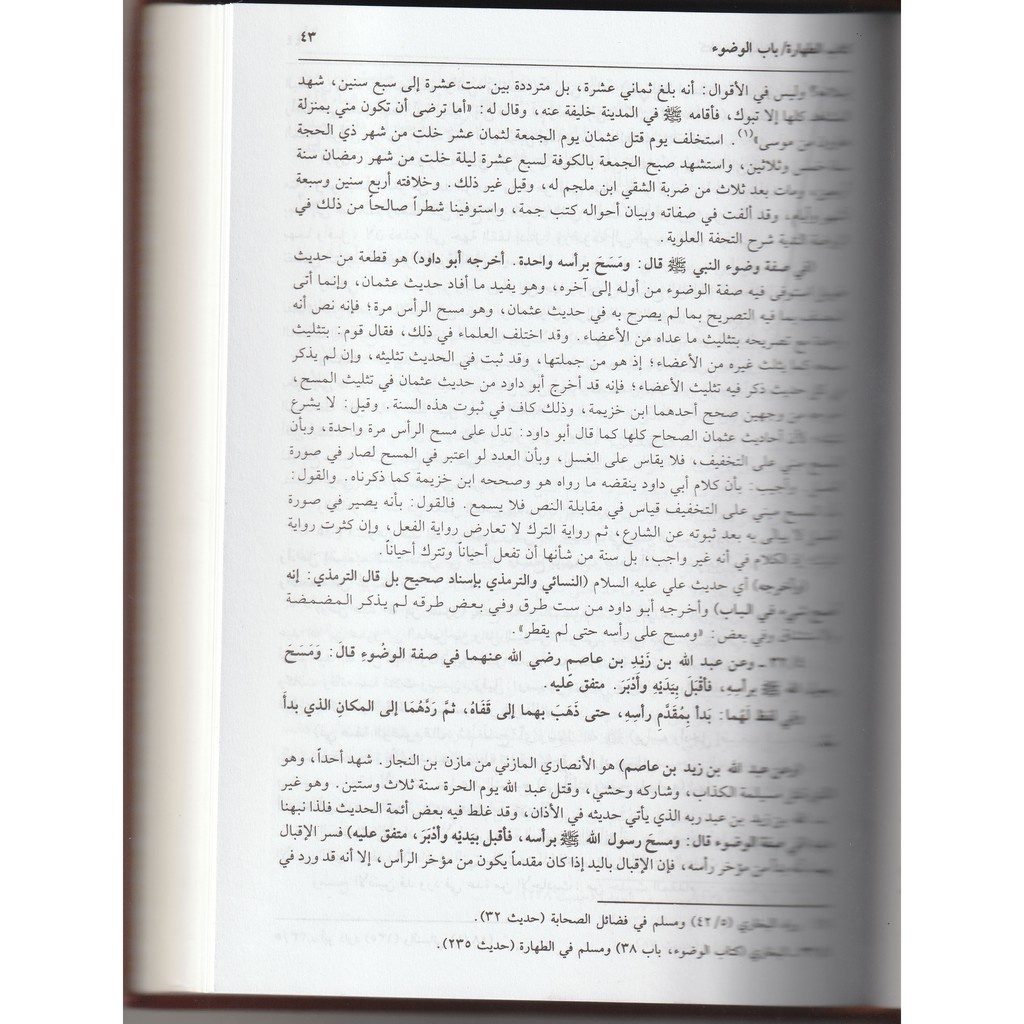 ٤٣
كتاب الطهارة/ باب الوضوء
وليس في الأقوال: أنه بلغ ثماني عشرة، بل مترددة بين ست عشرة إلى سبع سنين، شهد
كلها إلا تبوك، فأقامه ﷺ في المدينة خليفة عنه، وقال له: «أما ترضى أن تكون مني بمنزلة
هارون من موسى»(١). استخلف يوم قتل عثمان يوم الجمعة لثمان عشر خلت من شهر ذي الحجة
سنة خمس وثلاثين، واستشهد صبح الجمعة بالكوفة لسبع عشرة ليلة خلت من شهر رمضان سنة
ومات بعد ثلاث من ضربة الشقي ابن ملجم له، وقيل غير ذلك. وخلافته أربع سنين وسبعة
وأيام، وقد ألفت في صفاته وبيان أحواله كتب جمة، واستوفينا شطراً صالحاً من ذلك في
الندية شرح التحفة العلوية.
(في صفة وضوء النبي ﷺ قال: ومَسَحَ برأسه واحدة. أخرجه أبو داود) هو قطعة من حديث
استوفى فيه صفة الوضوء من أوله إلى آخره، وهو يفيد ما أفاد حديث عثمان، وإنما أتى
بما فيه التصريح بما لم يصرح به في حديث عثمان، وهو مسح الرأس مرة؛ فإنه نص أنه
مع تصريحه بتثليث ما عداه من الأعضاء. وقد اختلف العلماء في ذلك، فقال قوم: بتثليث
كما يثلث غيره من الأعضاء؛ إذ هو من جملتها، وقد ثبت في الحديث تثليثه، وإن لم يذكر
في كل حديث ذكر فيه تثليث الأعضاء؛ فإنه قد أخرج أبو داود من حديث عثمان في تثليث المسح،
من وجهين صحح أحدهما ابن خزيمة، وذلك كاف في ثبوت هذه السنة. وقيل: لا يشرع
لأن أحاديث عثمان الصحاح كلها كما قال أبو داود: تدل على مسح الرأس مرة واحدة، وبأن
المسح مبني على التخفيف، فلا يقاس على الغسل، وبأن العدد لو اعتبر في المسح لصار في صورة
الغسل. وأجيب: بأن كلام أبي داود ينقضه ما رواه هو وصححه ابن خزيمة كما ذكرناه. والقول:
المسح مبني على التخفيف قياس في مقابلة النص فلا يسمع. فالقول: بأنه يصير في صورة
الغسل لا يبالى به بعد ثبوته عن الشارع، ثم رواية الترك لا تعارض رواية الفعل، وإن كثرت رواية
إذ الكلام في أنه غير واجب، بل سنة من شأنها أن تفعل أحياناً وتترك أحياناً.
(وأخرجه) أي حديث علي عليه السلام (النسائي والترمذي بإسناد صحيح بل قال الترمذي: إنه
أصح شيء في الباب) وأخرجه أبو داود من ست طرق وفي بعض طرقه لم يذكر المضمضة
والاستنشاق وفي بعض: «ومسح على رأسه حتى لم يقطر».
٣٢/٤ ـ وعن عبد الله بن زَيْدِ بن عاصم رضي الله عنهما في صفة الوضُوءِ قالَ: وَمَسَحَ
رسول الله ﷺ برأسِهِ، فأقْبَلَ بِيَدَيْهِ وأدْبَرَ. متفق عَليه.
وفي لفظ لَهُما: بَدأ بِمُقَدَّمِ رأسِهِ، حتى ذَهَبَ بهما إلى قَفَاهُ، ثمَّ رَدَّهُمَا إلى المكانِ الذي بدأ
(وعن عبد الله بن زيد بن عاصم) هو الأنصاري المازني من مازن بن النجار. شهد أحداً، وهو
الذي قتل مسيلمة الكذاب، وشاركه وحشي، وقتل عبد الله يوم الحرة سنة ثلاث وستين. وهو غير
عبد الله بن زيد بن عبد ربه الذي يأتي حديثه في الأذان، وقد غلط فيه بعض أئمة الحديث فلذا نبهنا
(في صفة الوضوء قال: ومسحَ رسول الله ﷺ برأسه، فأقبل بيَديْه وأدْبَرَ، متفق عليه) فسر الإقبال
من مؤخر رأسه، فإن الإقبال باليد إذا كان مقدماً يكون من مؤخر الرأس، إلا أنه قد ورد في
البخاري (٤٢/٥) ومسلم في فضائل الصحابة (حديث ٣٢).
البخاري (كتاب الوضوء، باب ٣٨) ومسلم في الطهارة (حديث ٢٣٥).